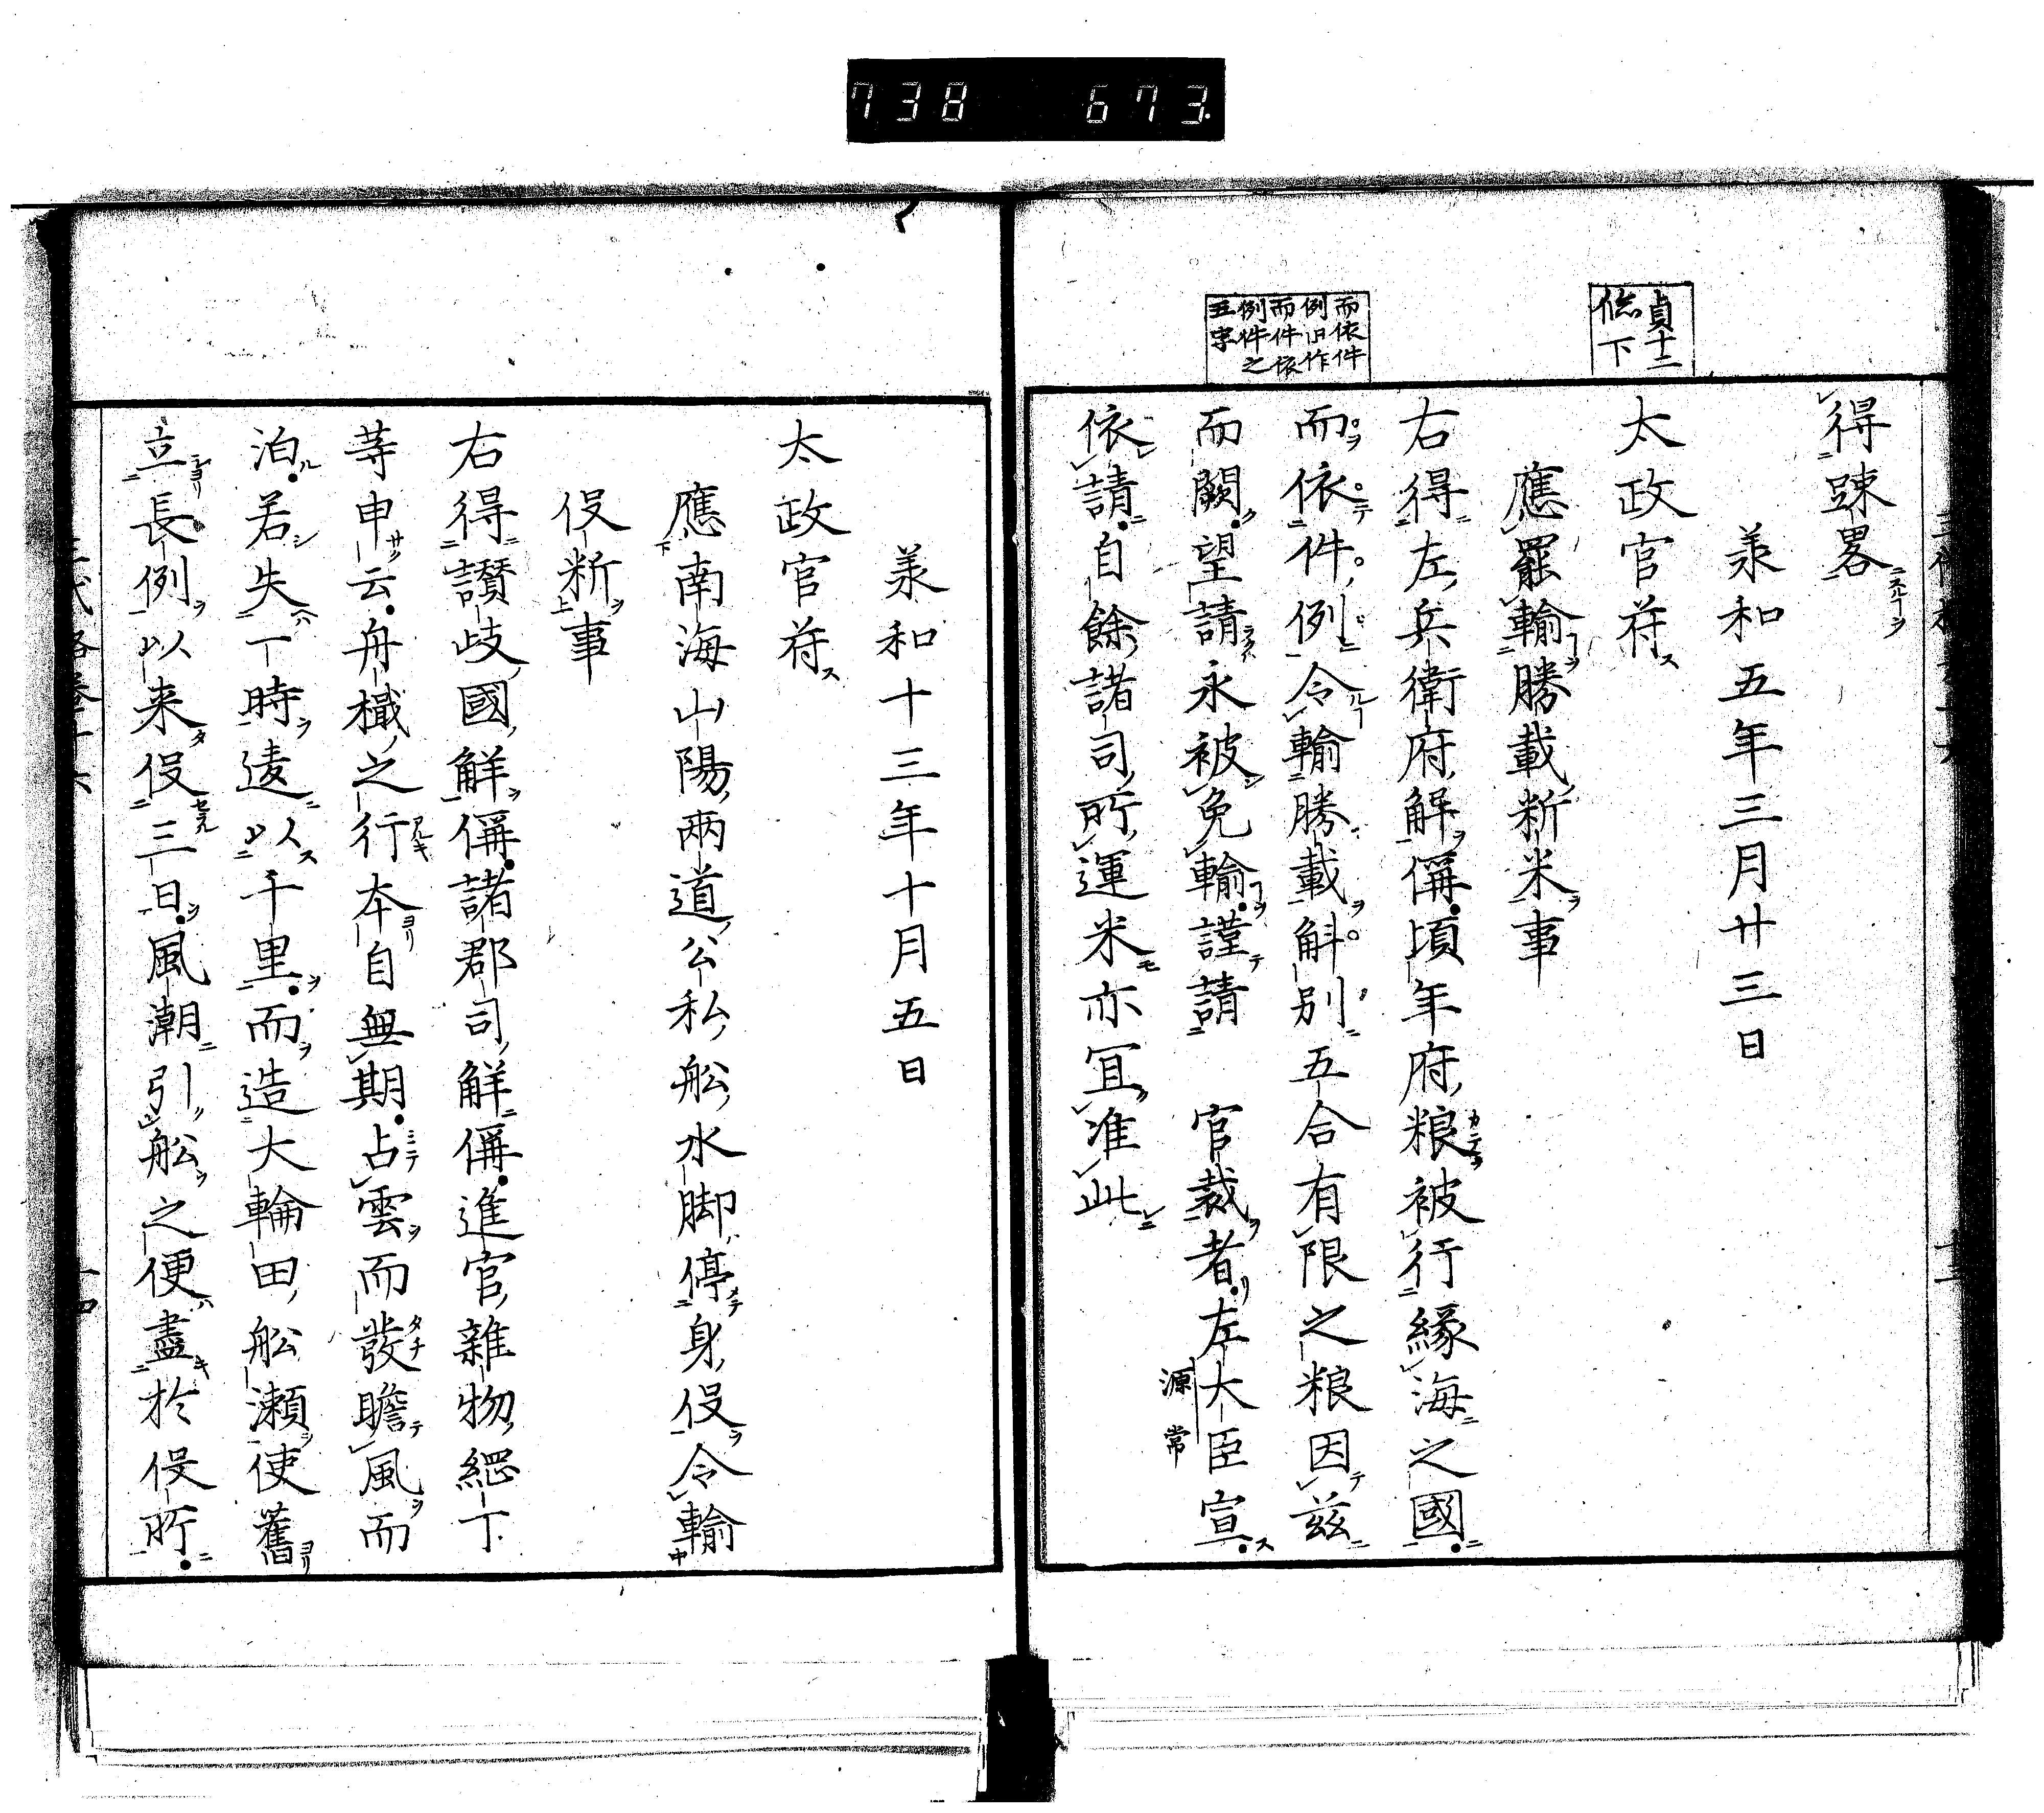 738 673.
貞十二
恷下
而依件
例旧作
而件依
例件之
五字
得踈畧
羕和五年三月廿三日
太政官符
應罷輸勝載斫米事
右得左兵衛府解偁頃年府粮被行緣海之國
而依件例令輸勝載斛別五合有限之粮因兹
而闕望請永被免輸謹請 官裁者左大臣宣
源常
依請自餘諸司所運米亦冝准此
羕和十三年十月五日
太政官符
應南海山陽兩道公私舩水脚停身伇令輸
伇斫事
右得讃岐國解偁諸郡司解偁進官雜物綱丁
䓁申云舟檝之行本自無期占雲而發瞻風而
泊若失一時逺以千里而造大輪田舩瀬使舊
立長例以来伇三日風潮引舩之便盡於伇所